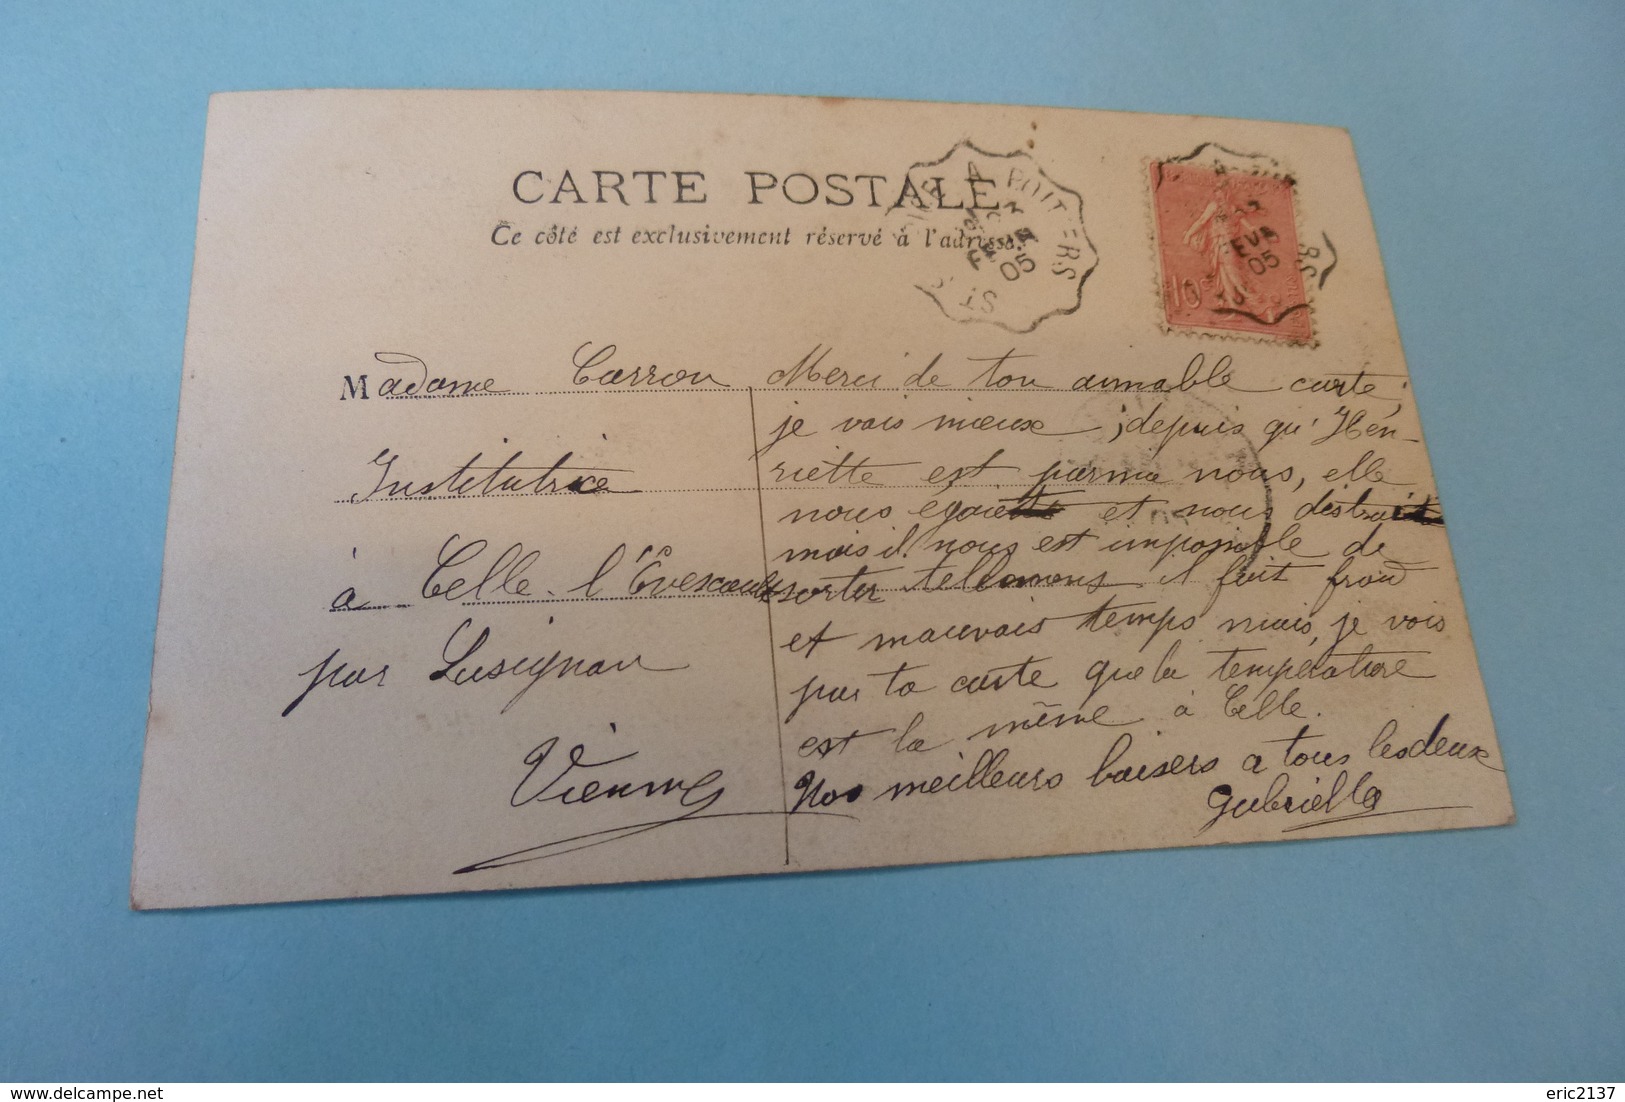 CARTE POSTALE
Ce côté est exclusivement réservé à l'adresse.
A POITIERS
05
EVR
05
10
Madame Carron
Institutrice
à Celle-l'Evescault
par Lusignan
Vienne
Merci de ton aimable carte,
je vais mieux ; depuis qu'Hen-
riette est parmi nous, elle
nous égaie et nous distrait
mais il nous est impossible de
sorter tellemens il fait froid
et mauvais temps mais, je vois
par ta carte que la température
est la même à Celle.
Nos meilleurs baisers a tous les deux
Gabrielle
delcampe.net
eric2137